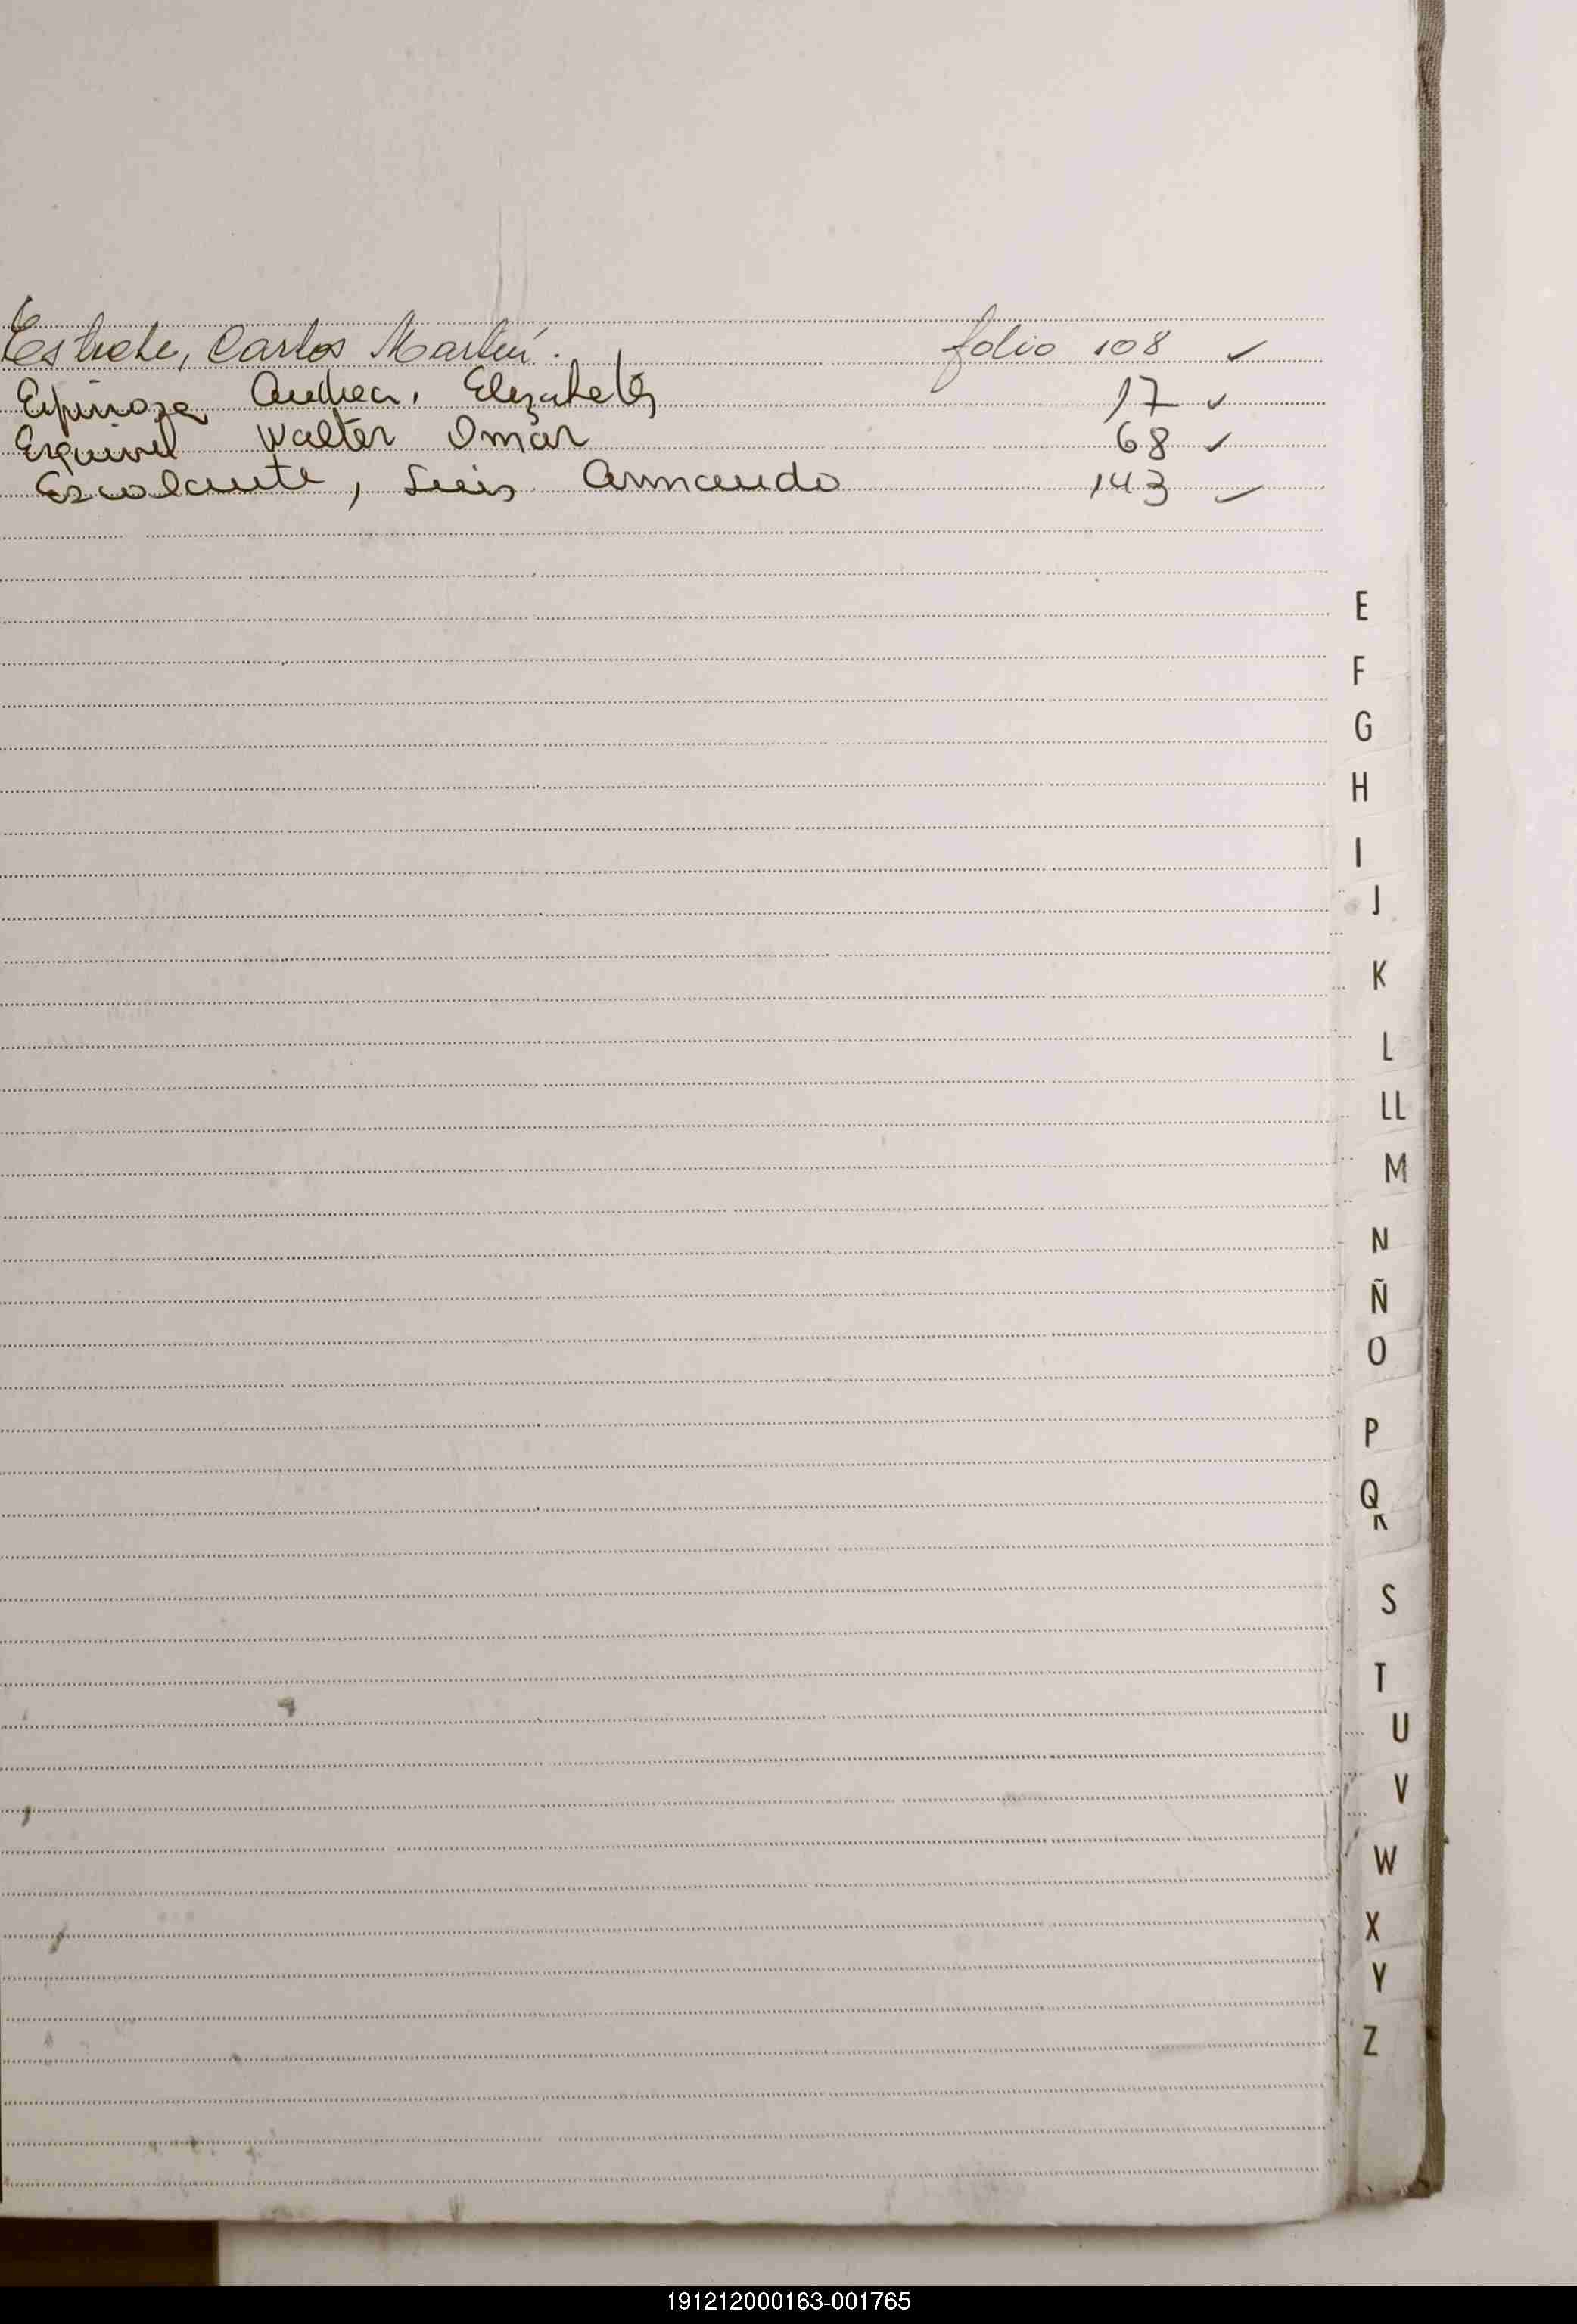 Carlos Martín. folio 108 ✓
Espinoza Andrea, Elizabeth 17 ✓
Esquivel Walter Omar 68 ✓
Escalante, Luis Armando 143 ✓
E
F
G
H
I
J
K
L
LL
M
N
Ñ
O
P
Q
R
S
T
U
V
W
X
Y
Z
191212000163-001765